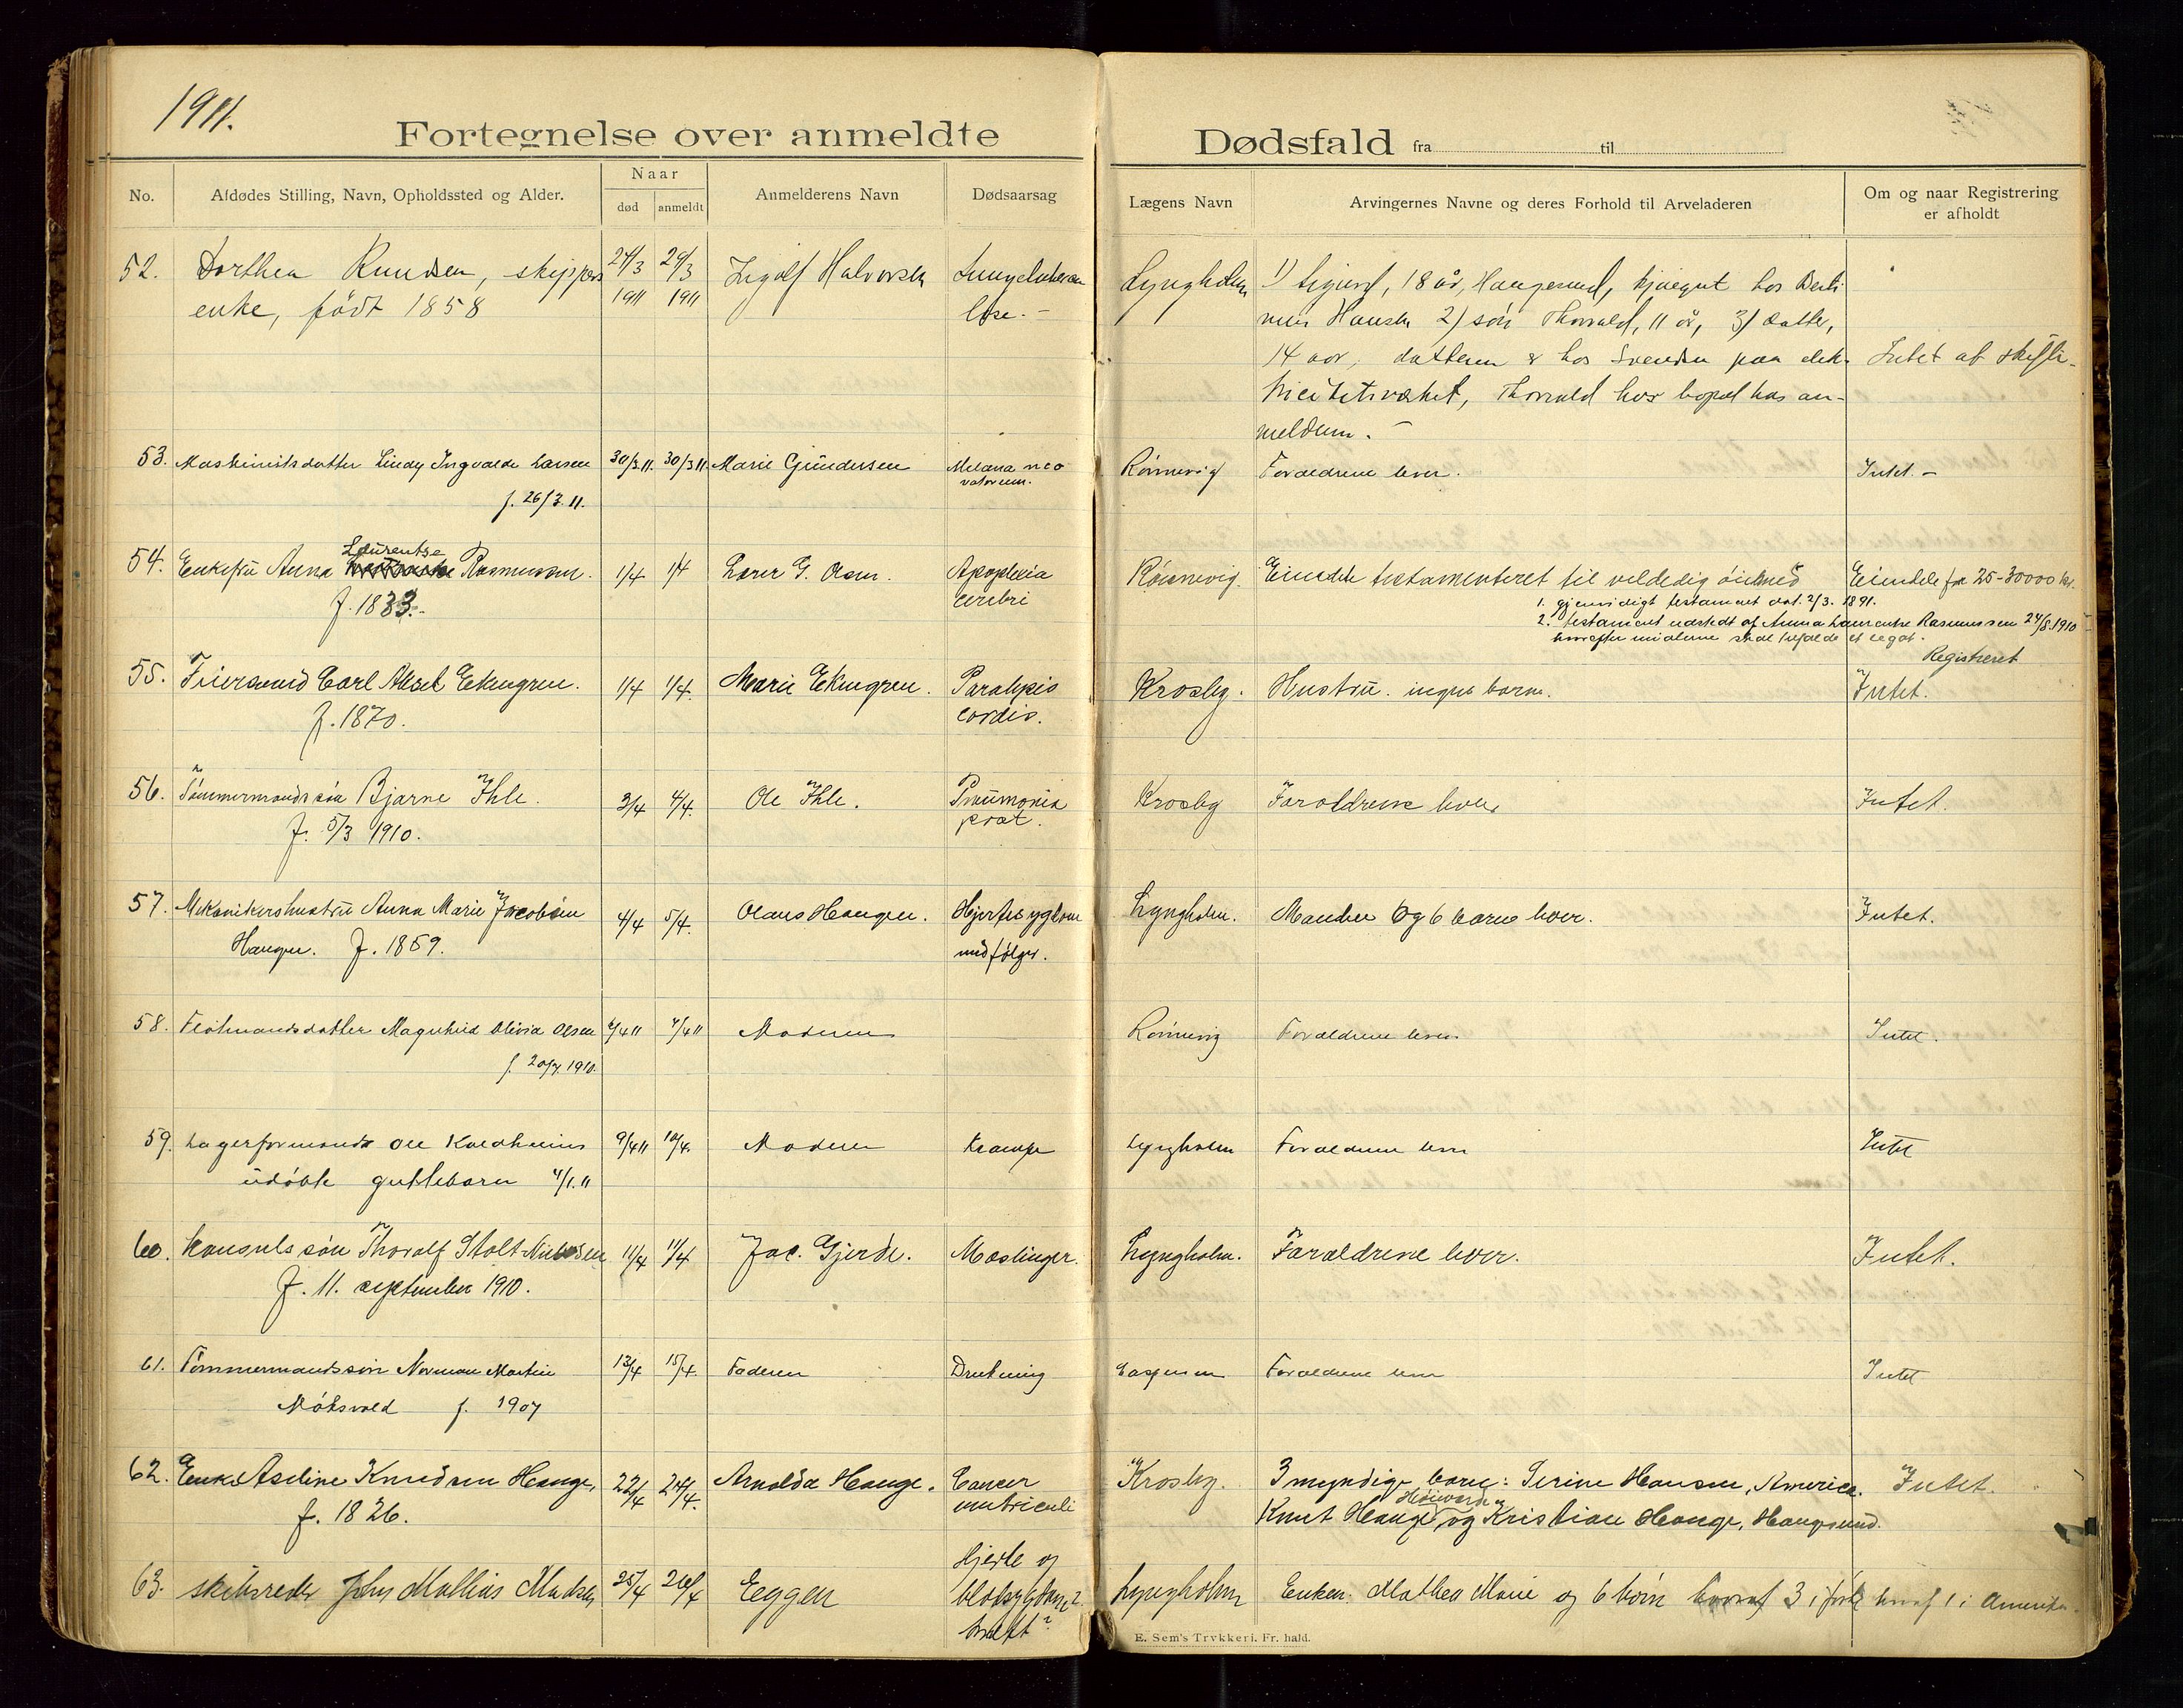 1911.
Fortegnelse over anmeldte Dødsfald fra til
No. Afdødes Stilling, Navn, Opholdssted og Alder. Naar død anmeldt Anmelderens Navn Dødsaarsag Lægens Navn Arvingernes Navne og deres Forhold til Arveladeren Om og naar Registrering er afholdt
52. Dorthea Knudsen, skippers 29/3 Ingolf Halvorsen Lyngholm 1) Sigurd, 18 år, Haugesund,
enke, født 1858 1911 1911 2) søn Thorvald, 11 år, 3) datter,
14 aar, datteren er hos Svendsen paa elek- Intet at skifte
tricitetsværket, Thorvald har bopæl hos an-
melderen.
53. Maskinistsdatter Lindy Ingvalda Larsen 30/3 11. 30/3 11. Marie Gundersen Melæna neo Rönnevig Forældrene lever. Intet.
f. 26/3. 11. natorum.
54. Enkefru Anna Laurentze Rasmussen. 1/4 1/4 Lærer G. Olsen. Apoplexia Rönnevig. Eiendele testamenteret til veldedig öiemed Eiendele for 25-30000 kr.
f. 1833. cerebri 1. gjensidigt testament dat. 2/3. 1891.
2. testament udstedt af Anna Laurentze Rasmussen 24/8. 1910
hvorefter midlerne skal tilfalde et legat.
Registreret
55. Carl Aksel Ekengren. 1/4 1/4. Marie Ekengren. Paralysis Krosby. Hustru. ingen barn. Intet.
f. 1870. cordis.
56. Tömmermands sön Bjarne Ihle. 3/4 4/4. Ole Ihle. Pneumonia Krosby Forældrene lever Intet.
f. 5/3 1910.
57. Mekanikershustru Anna Marie Jacobsen 4/4 5/4. Olaus Haugen. Hjertesygdom Lyngholm. Manden og 6 barn lever. Intet.
Haugen. f. 1859. med følger.
58. Magnhild Olivia Olsen 6/4 11 7/4 11 Moderen Rönnevig Forældrene lever Intet.
f. 20/7. 1910.
59. Lagerformand Ole Kaldheims 9/4 11 10/4. Moderen Krampe Lyngholm Forældrene lever Intet
udöbte guttebarn 4/1. 11
60. Konsuls sön Thoralf Stolt-Nielsen 11/4 11/4 Jac. Gjerde. Mæslinger. Lyngholm. Forældrene lever. Intet.
f. 11. september 1910.
61. Tömmermandssön Norman Martin 13/4 15/4. Faderen Drukning Forældrene lever Intet
f. 1907
62. Enke Aseline Knudsen Hauge, 22/4 24/4. Arnolda Hauge. Cancer Krosby. 3 myndige barn: Serine Hansen, America. Intet.
f. 1826. ventriculi Knut Hauge og Kristian Hauge, Haugesund.
63. skibsreder John Mathias Madsen 25/4 26/4 Eggen Hjerte og Lyngholm Enken: Mathea Marie og 6 börn hvoraf 1 i Amerika.
E. Sem's Trykkeri. Fr. hald.